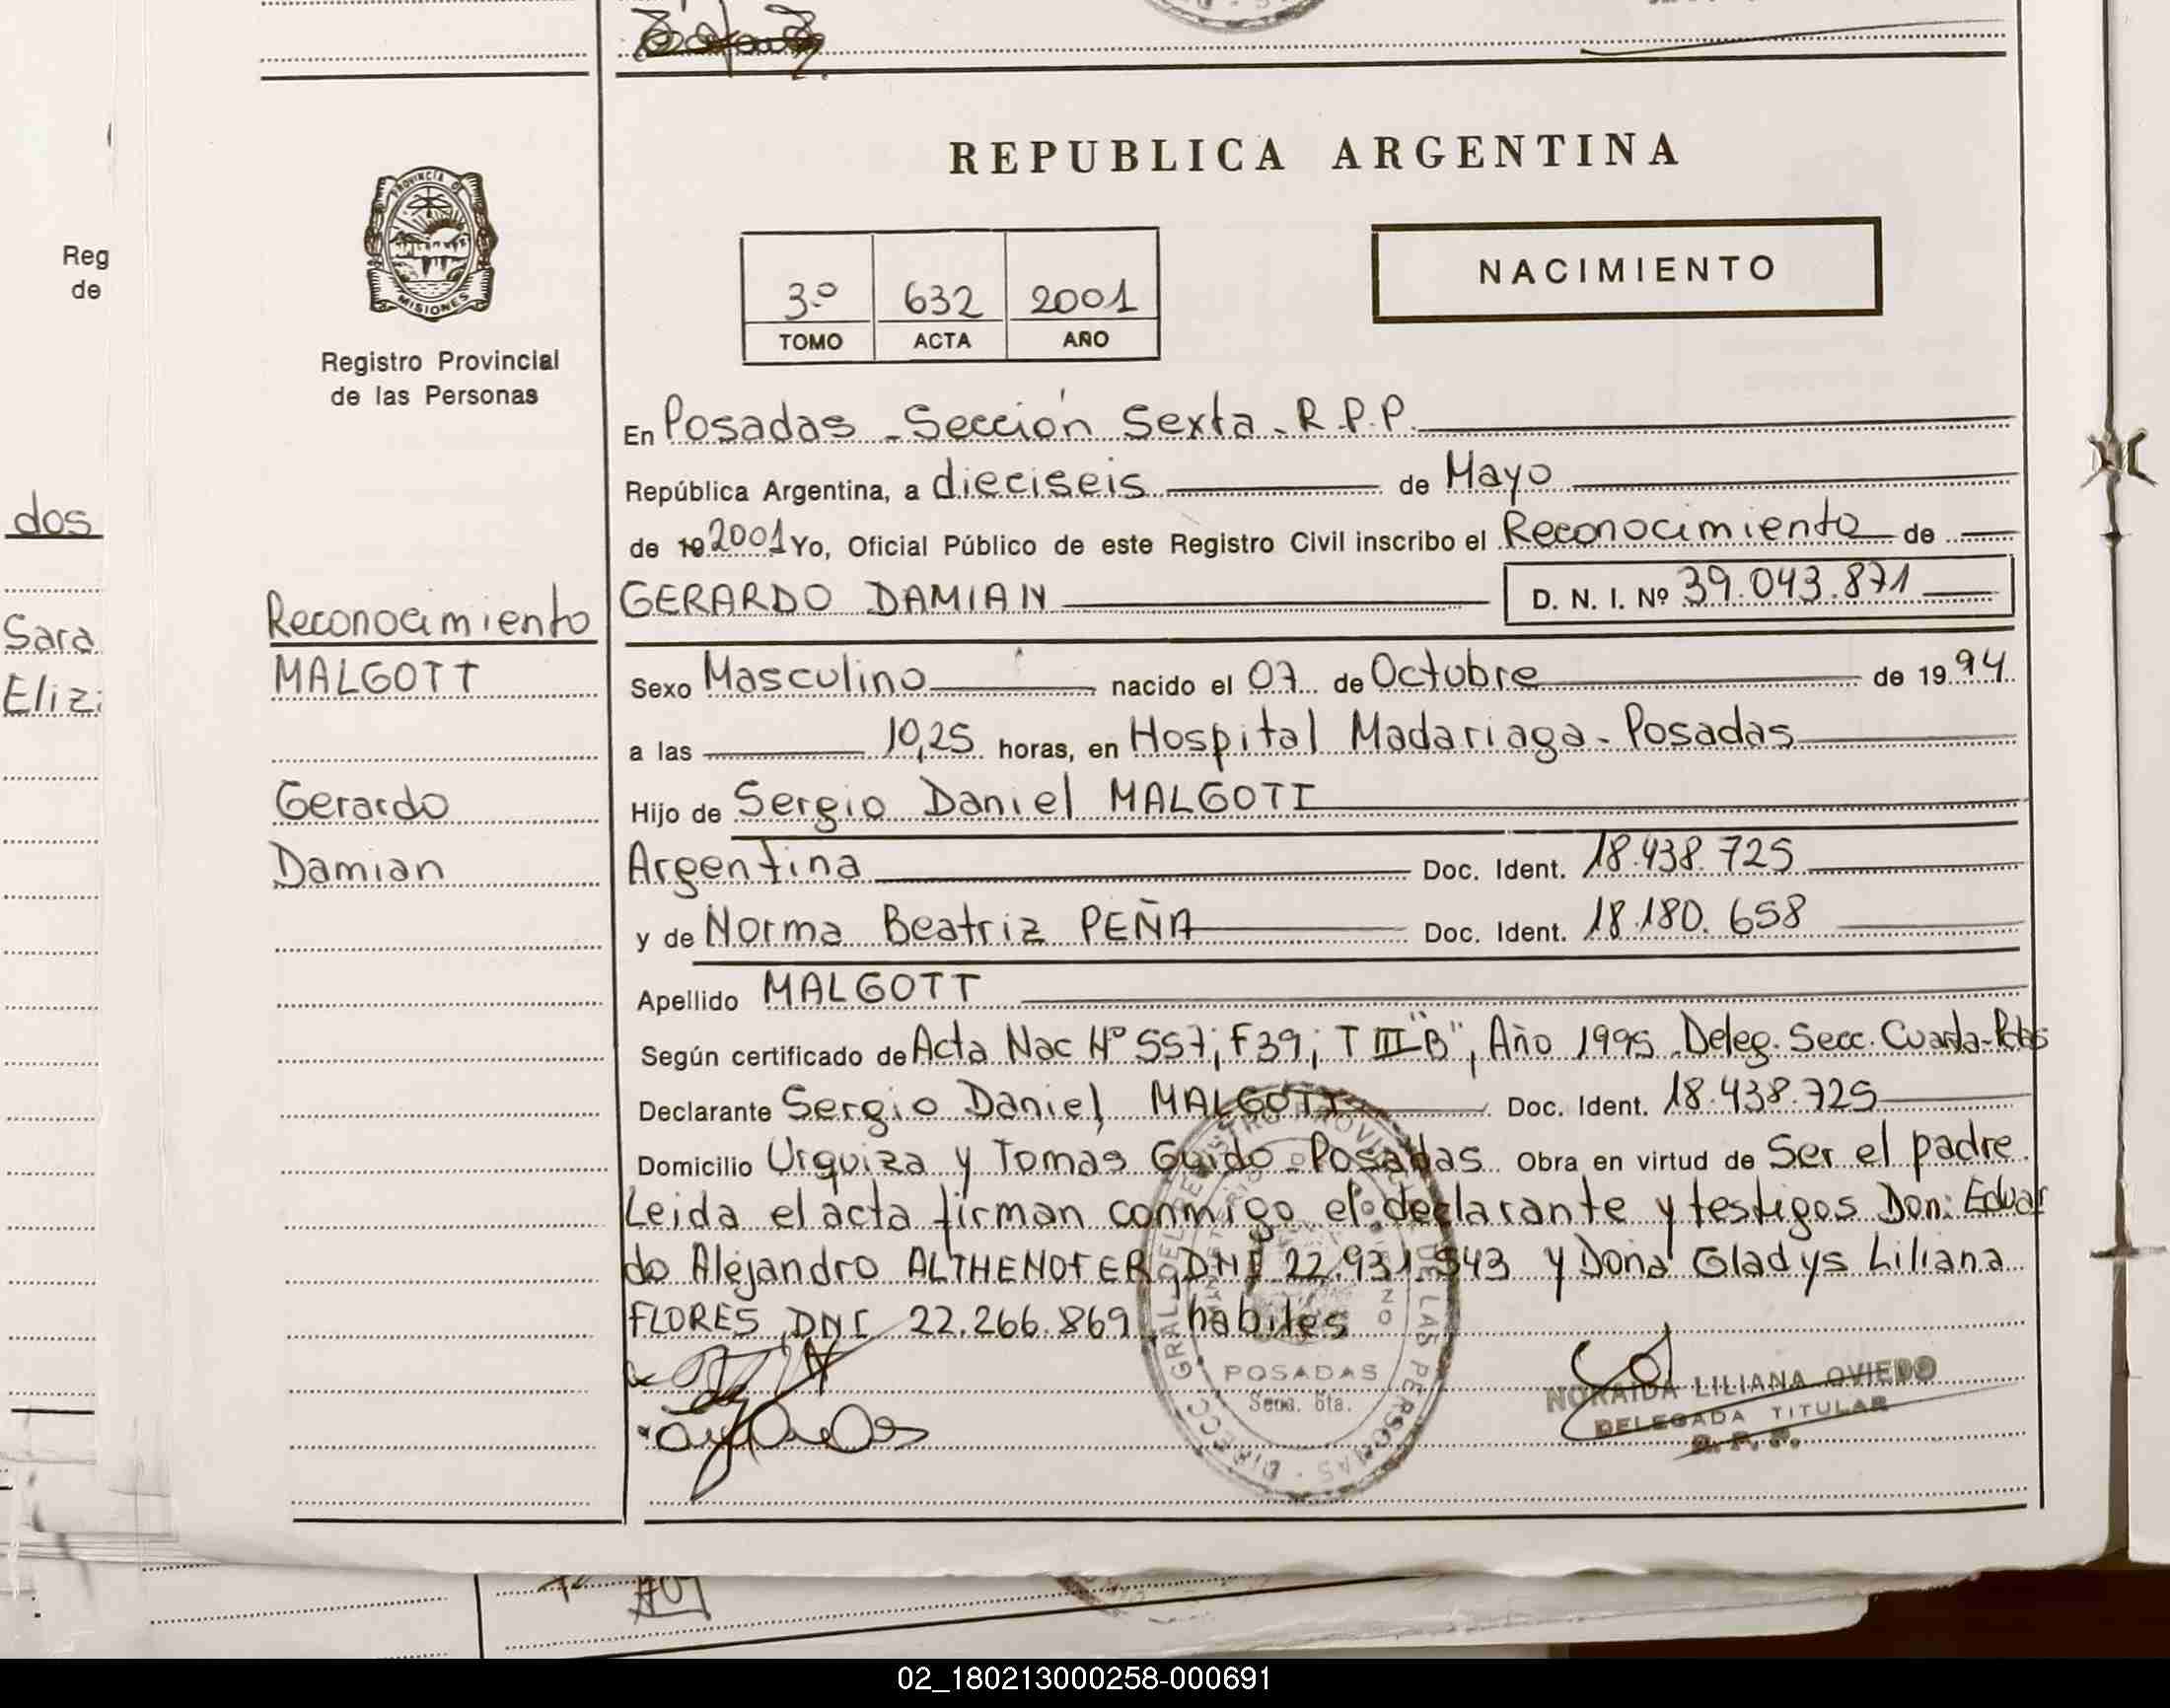 REPUBLICA ARGENTINA
PROVINCIA DE
MISIONES
Registro Provincial
de las Personas
Reg
de
dos
Sara
Eliz
3º 632 2001
TOMO ACTA AÑO
NACIMIENTO
En Posadas - Sección Sexta - R.P.P.
República Argentina, a dieciseis de Mayo
de 19 2001 Yo, Oficial Público de este Registro Civil inscribo el Reconocimiento de
Reconocimiento
MALGOTT
Gerardo
Damian
GERARDO DAMIAN D. N. I. Nº 39.043.871
Sexo Masculino nacido el 07 de Octubre de 1994
a las 10,25 horas, en Hospital Madariaga - Posadas
Hijo de Sergio Daniel MALGOTT
Argentina Doc. Ident. 18.438.725
y de Norma Beatriz PEÑA Doc. Ident. 18.180.658
Apellido MALGOTT
Según certificado de Acta Nac Nº 557; F39; T III "B", Año 1995 Deleg. Secc. Cuarta - Pdas
Declarante Sergio Daniel MALGOTT Doc. Ident. 18.438.725
Domicilio Urquiza y Tomas Guido - Posadas Obra en virtud de Ser el padre
Leida el acta firman conmigo el declarante y testigos Don: Eduar
do Alejandro ALTHENOFER DNI 22.931.543 y Doña Gladys Liliana
FLORES DNI 22.266.869, habiles
DIRECC. GRAL. DEL REGISTRO PROVINCIAL DE LAS PERSONAS
POSADAS
Secc. 6ta.
NORAIDA LILIANA OVIEDO
DELEGADA TITULAR
R. P. P.
02_180213000258-000691